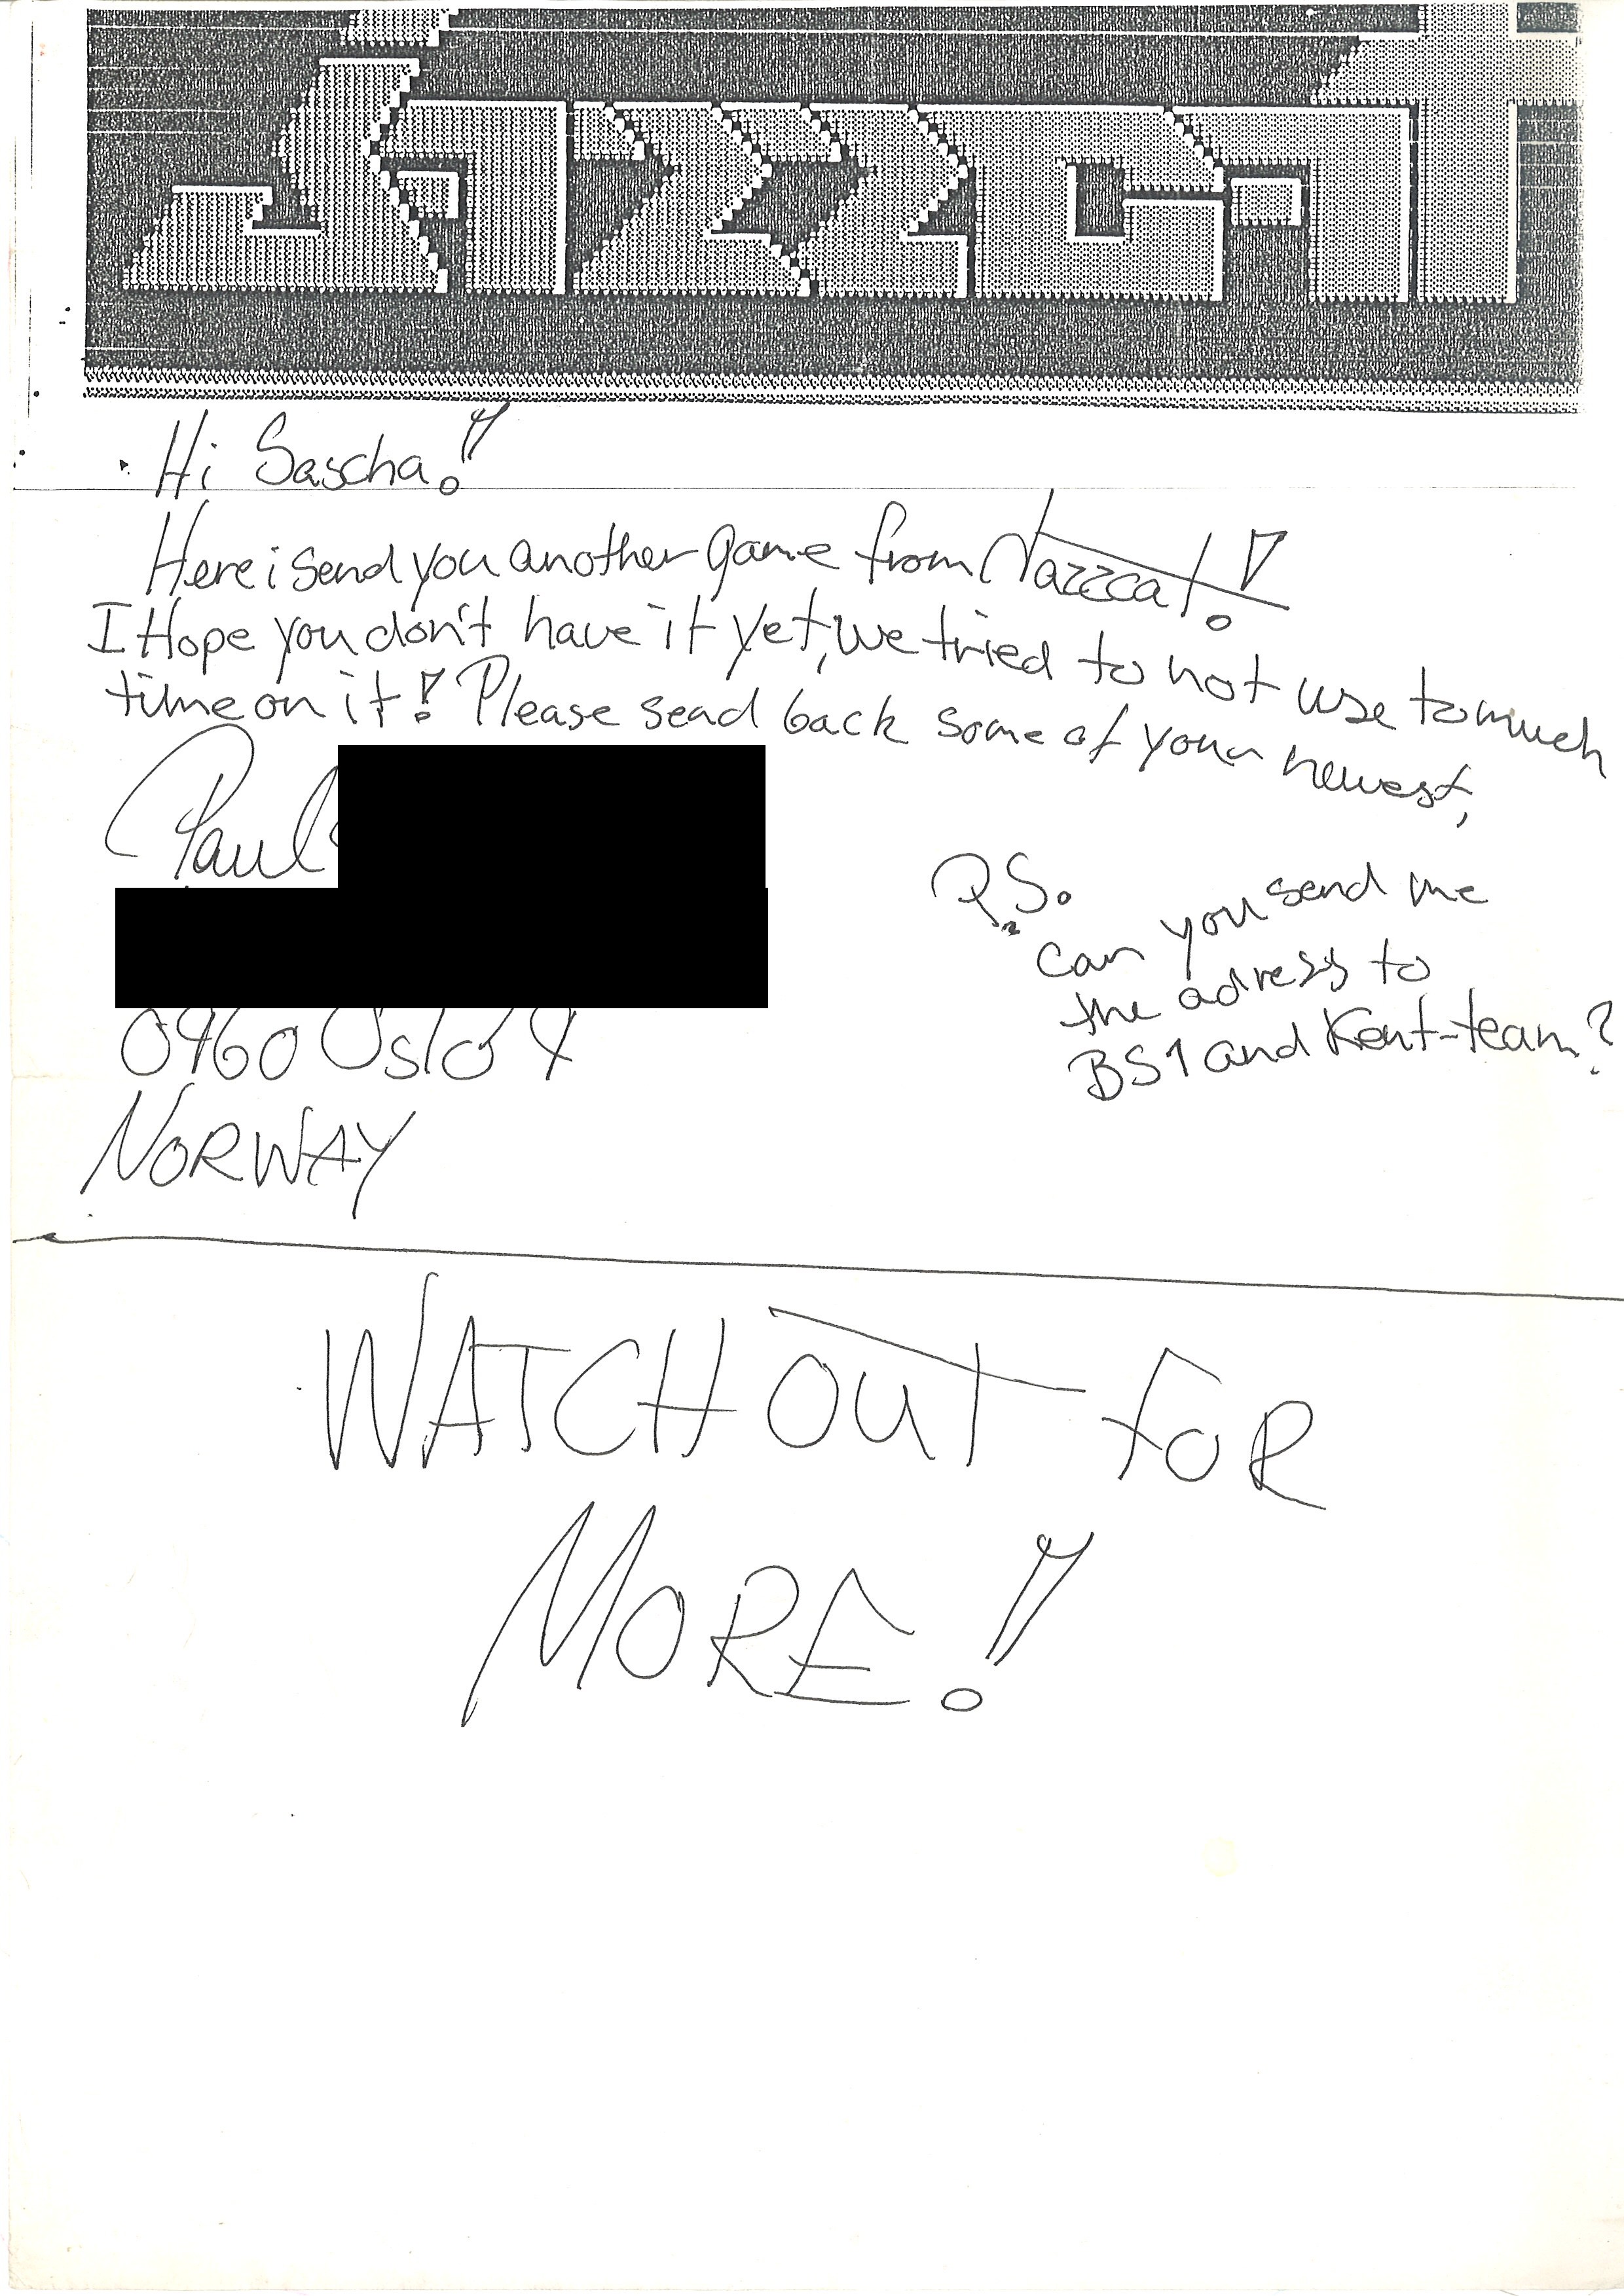 Hi Sascha!
Here i send you another game from Jazzcat!
I Hope you don't have it yet, we tried to not use to much
time on it! Please send back some of your newest,
Paul
0960 Oslo 9
NORWAY
P.S.
can you send me
the adress to
BS1 and Kent-team?
WATCH OUT FOR
MORE!